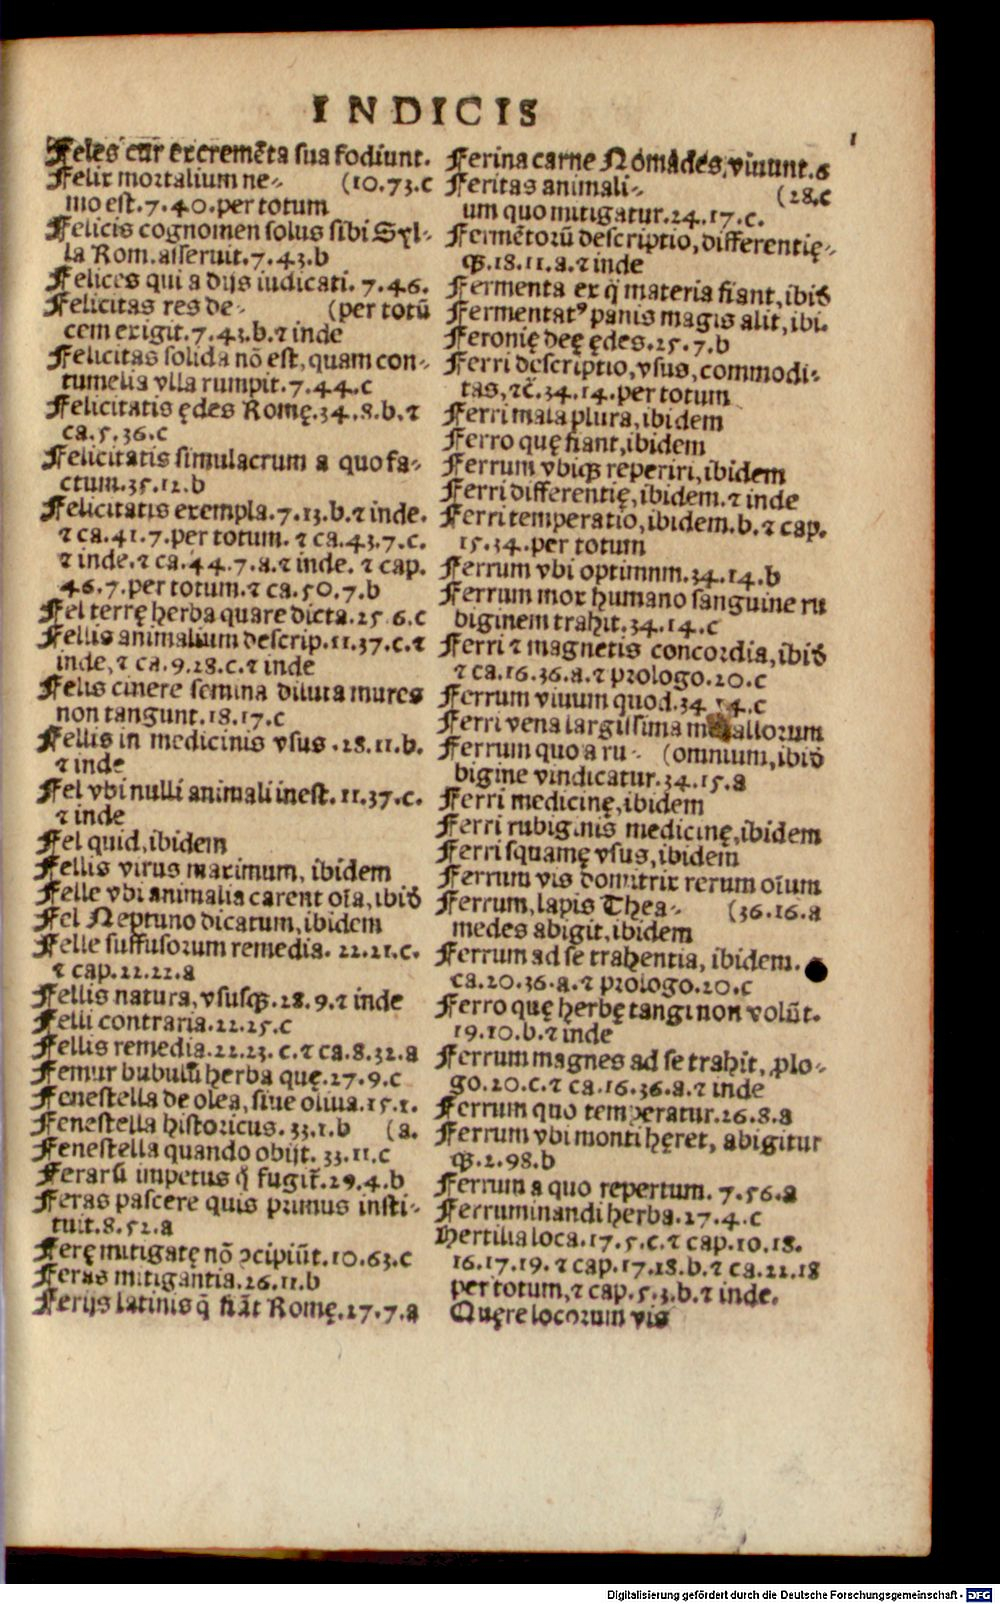 INDICIS
Feles cur excremēta sua fodiunt.
Felix mortalium ne- (10.73.c
mo est.7.40.per totum
Felicis cognomen solus sibi Syl-
la Rom.asseruit.7.43.b
Felices qui a dijs iudicati. 7.46.
Felicitas res de- (per totū
cem exigit.7.43.b.⁊ inde
Felicitas solida nō est, quam con-
tumelia vlla rumpit.7.44.c
Felicitatis ędes Romę.34.8.b.⁊
ca.5.36.c
Felicitatis simulacrum a quo fa-
ctum.35.12.b
Felicitatis exempla.7.13.b.⁊ inde.
⁊ ca.41.7.per totum. ⁊ ca.43.7.c.
⁊ inde.⁊ ca.44.7.a.⁊ inde. ⁊ cap.
46.7.per totum.⁊ ca.50.7.b
Fel terrę herba quare dicta.25.6.c
Fellis animalium descrip.11.37.c.⁊
inde,⁊ ca.9.28.c.⁊ inde
Felis cinere semina diluta mures
non tangunt.18.17.c
Fellis in medicinis vsus.28.11.b.
⁊ inde
Fel vbi nulli animali inest.11.37.c.
⁊ inde
Fel quid,ibidem
Fellis virus maximum, ibidem
Felle vbi animalia carent oīa,ibiđ
Fel Neptuno dicatum,ibidem
Felle suffusorum remedia. 22.21.c.
⁊ cap.22.22.a
Fellis natura,vsusqꝫ.28.9.⁊ inde
Felli contraria.22.25.c
Fellis remedia.22.23.c.⁊ ca.8.32.a
Femur bubulū herba quę.27.9.c
Fenestella de olea, siue oliua.15.1.
Fenestella historicus. 33.1.b (a.
Fenestella quando obijt. 33.11.c
Ferarū impetus q̄ fugiī.29.4.b
Feras pascere quis primus insti-
tuit.8.52.a
Ferę mitigatę nō ↄcipiūt.10.63.c
Feras mitigantia.26.11.b
Ferijs latinis q̄ fiāt Romę.27.7.a
Ferina carne Nomades,viuunt.6
Feritas animali- (28.c
um quo mitigatur.24.17.c.
Fermētorū descriptio,differentię-
qꝫ.18.11.a.⁊ inde
Fermenta ex q̄ materia fiant,ibiđ
Fermentatꝰ panis magis alit,ibi.
Feronię deę ędes.25.7.b
Ferri descriptio,vsus,commodi-
tas,⁊c̄.34.14.per totum
Ferri mala plura,ibidem
Ferro quę fiant,ibidem
Ferrum vbiqꝫ reperiri,ibidem
Ferri differentię,ibidem.⁊ inde
Ferri temperatio,ibidem.b.⁊ cap.
15.34.per totum
Ferrum vbi optimnm.34.14.b
Ferrum mox humano sanguine ru
biginem trahit.34.14.c
Ferri ⁊ magnetis concordia,ibiđ
⁊ ca.16.36.a.⁊ prologo.20.c
Ferrum viuum quod.34.14.c
Ferri vena largissima metallorum
Ferrum quo a ru- (omnium,ibiđ
bigine vindicatur.34.15.a
Ferri medicinę,ibidem
Ferri rubiginis medicinę,ibidem
Ferri squamę vsus,ibidem
Ferrum vis domitrix rerum oīum
Ferrum,lapis Thea- (36.16.a
medes abigit,ibidem
Ferrum ad se trahentia, ibidem.
ca.20.36.a.⁊ prologo.20.c
Ferro quę herbę tangi non volūt.
19.10.b.⁊ inde
Ferrum magnes ad se trahit, ꝓlo-
go.20.c.⁊ ca.16.36.a.⁊ inde
Ferrum quo temperatur.26.8.a
Ferrum vbi monti hęret, abigitur
qꝫ.2.98.b
Ferrum a quo repertum. 7.56.a
Ferruminandi herba.27.4.c
Hertilia loca.17.5.c.⁊ cap.10.18.
16.17.19.⁊ cap.17.18.b.⁊ ca.21.18
per totum,⁊ cap.5.3.b.⁊ inde.
Quęre locorum vis
Digitalisierung gefördert durch die Deutsche Forschungsgemeinschaft - DFG